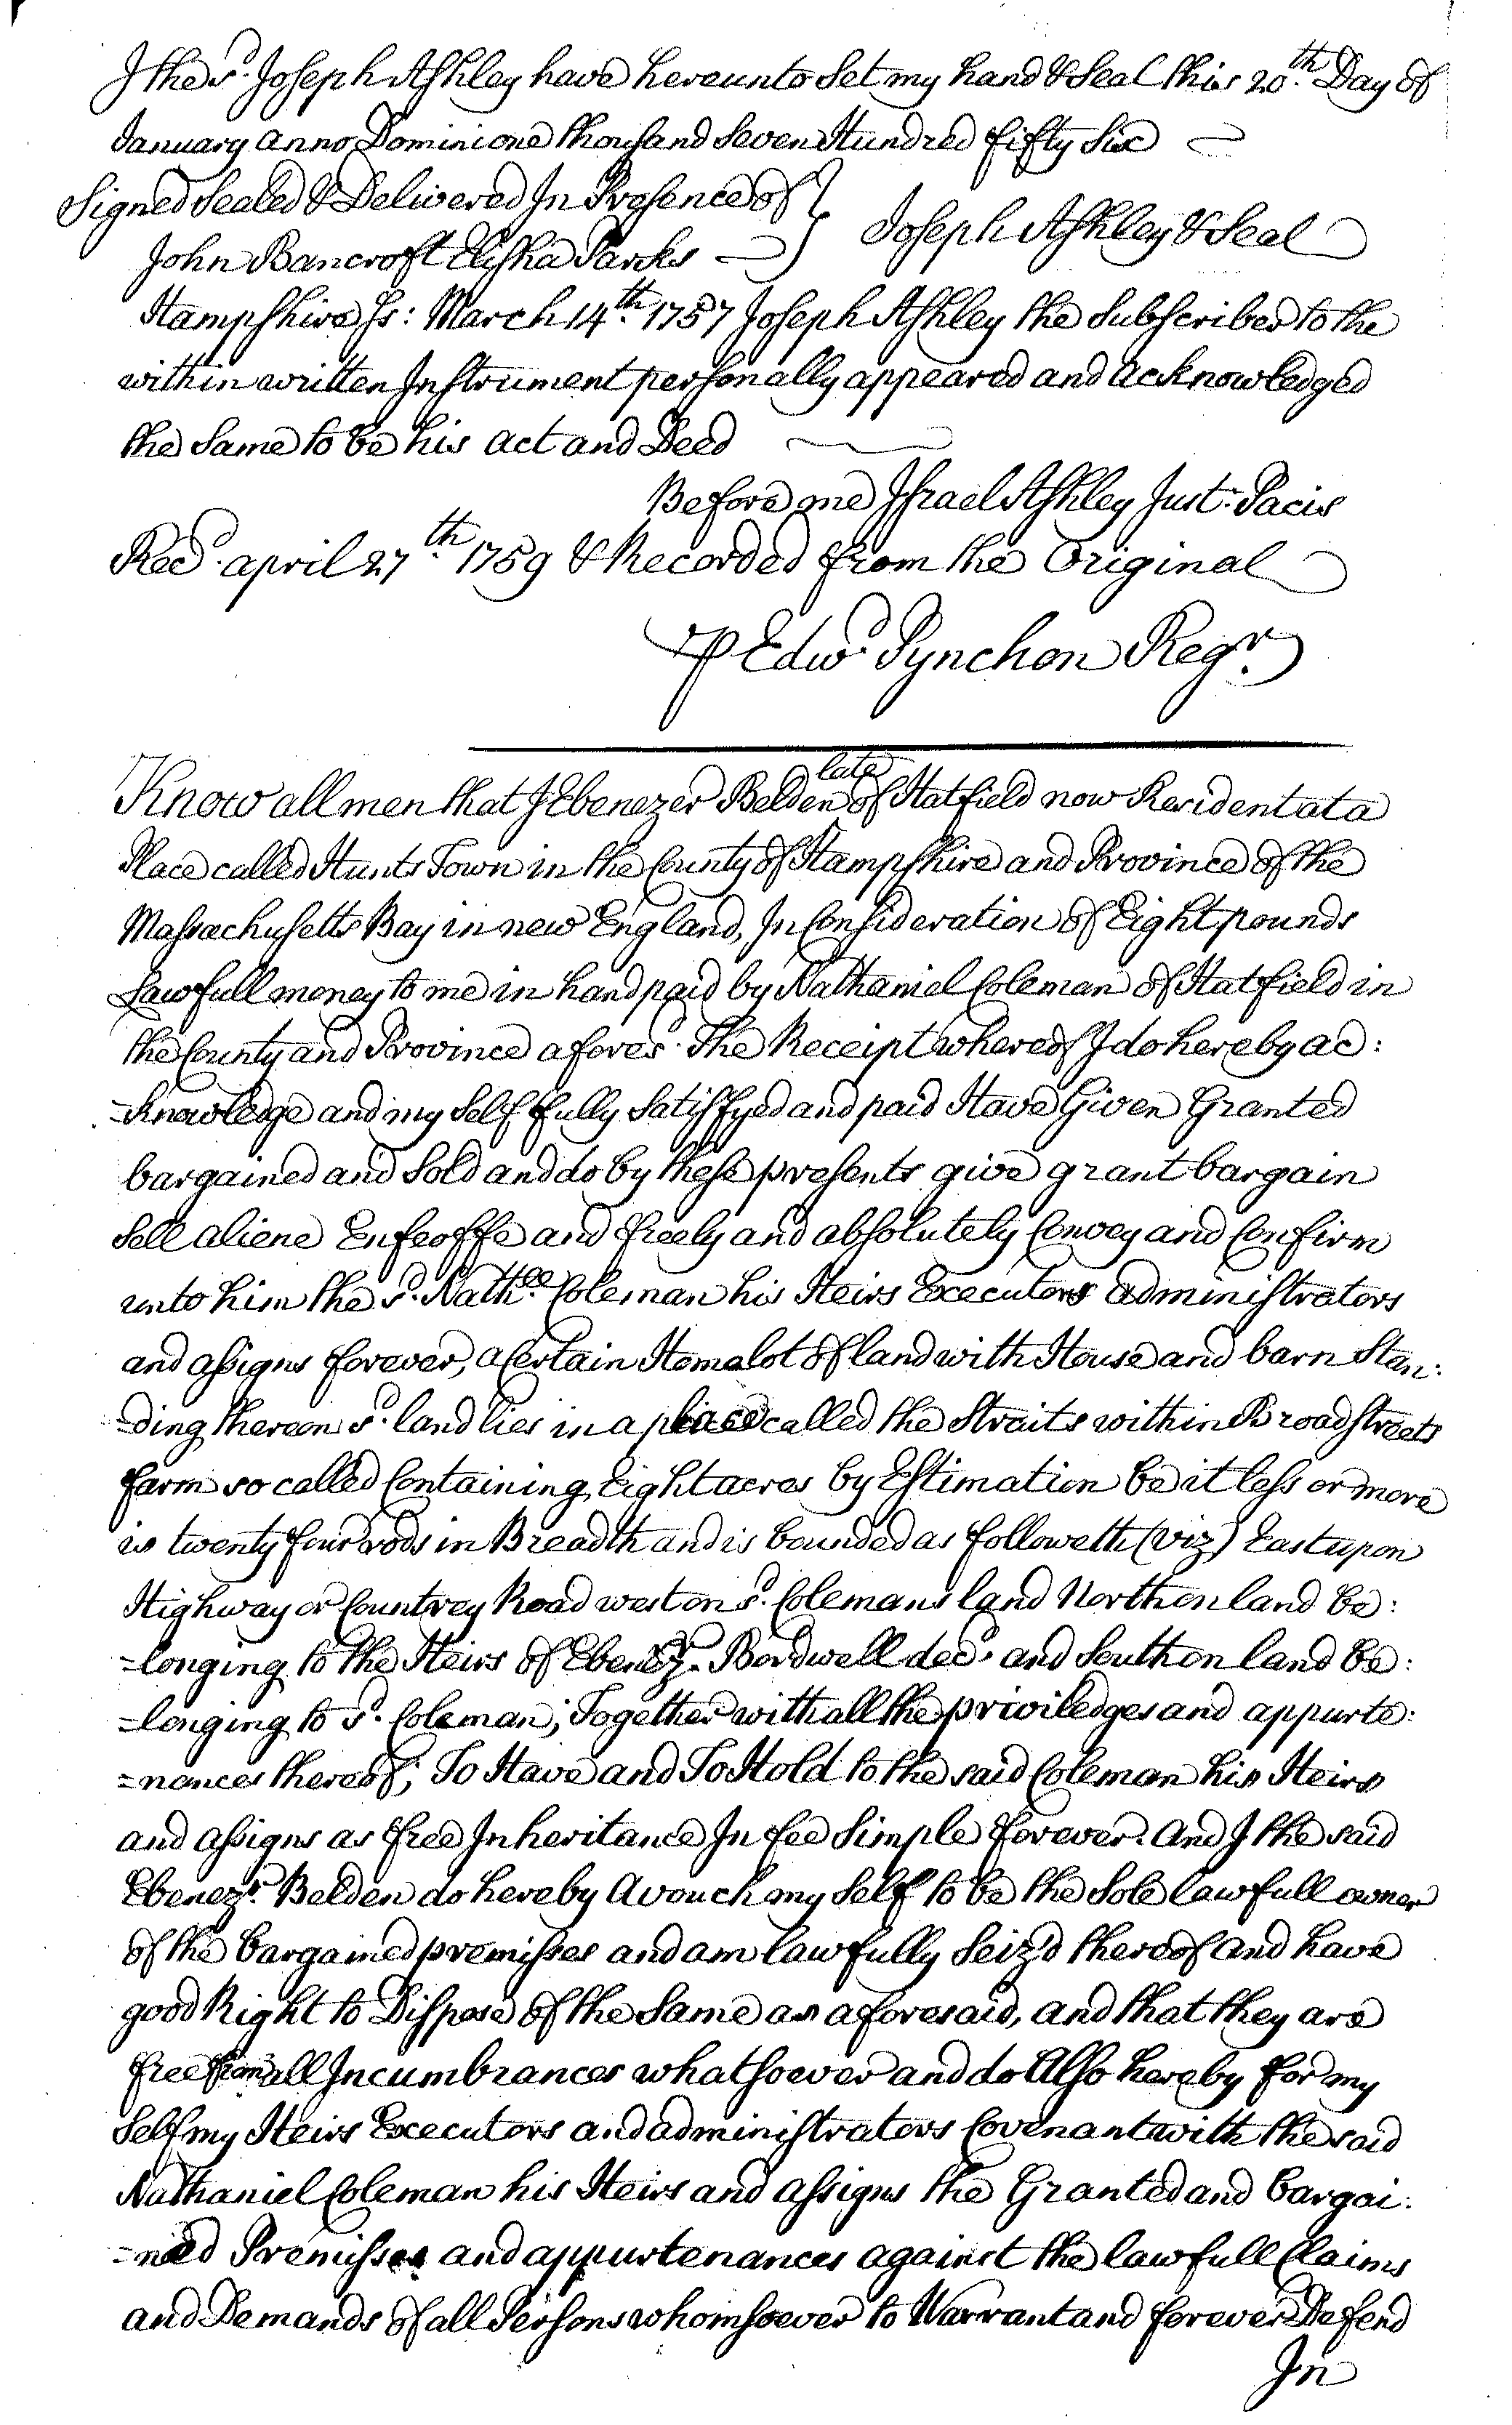 I the sd. Joseph Ashley have hereunto Set my hand & Seal this 20th. Day of
January anno Domini one thousand Seven Hundred fifty Six
Signed Sealed & Delivered In Presence of } Joseph Ashley & Seal
John Bancroft Elisha Parks
Hampshire Ss: March 14th. 1757 Joseph Ashley the Subscriber to the
within written Instrument personally appeared and acknowledged
the Same to be his act and Deed
Before me Israel Ashley Just: Pacis
Recd. april 27th. 1759 & Recorded from the Original
⅌ Edwd. Pynchon Regr.
Know all men that I Ebenezer Belden late of Hatfield now Resident at a
Place called Hunts Town in the County of Hampshire and Province of the
Massachusetts Bay in new England, In Consideration of Eight pounds
Lawfull money to me in hand paid by Nathaniel Coleman of Hatfield in
the County and Province aforesd. The Receipt whereof I do hereby ac:
=knowledge and my Self fully Satisfyed and paid Have Given Granted
bargained and Sold and do by these presents give grant bargain
Sell aliene Enfeoffe and freely and absolutely Convey and Confirm
unto him the sd. Nathll. Coleman his Heirs Executors administrators
and assigns forever, a Certain Homelot of land with House and barn Stan:
=ding thereon sd. land lies in a place called the Straits within Broadstreets
farm so called Containing Eight acres by Estimation be it less or more
is twenty four rods in Breadth and is bounded as followeth (viz) East upon
Highway or Countrey Road west on sd. Colemans land North on land be:
=longing to the Heirs of Ebenezr. Bordwell decd. and South on land be:
=longing to sd. Coleman; Together with all the priviledges and appurte:
=nances thereof; To Have and To Hold to the said Coleman his Heirs
and assigns as free Inheritance In fee Simple forever. And I the said
Ebenezr. Belden do hereby avouch my Self to be the Sole lawfull owner
of the bargained premisses and am lawfully Seiz'd thereof and have
good Right to Dispose of the Same as aforesaid, and that they are
free from all Incumbrances whatsoever and do Also hereby for my
Self my Heirs Executors and administrators Covenant with the said
Nathaniel Coleman his Heirs and assigns the Granted and bargai:
=ned Premisses and appurtenances against the lawfull Claims
and Demands of all Persons whomsoever to Warrant and forever Defend
In